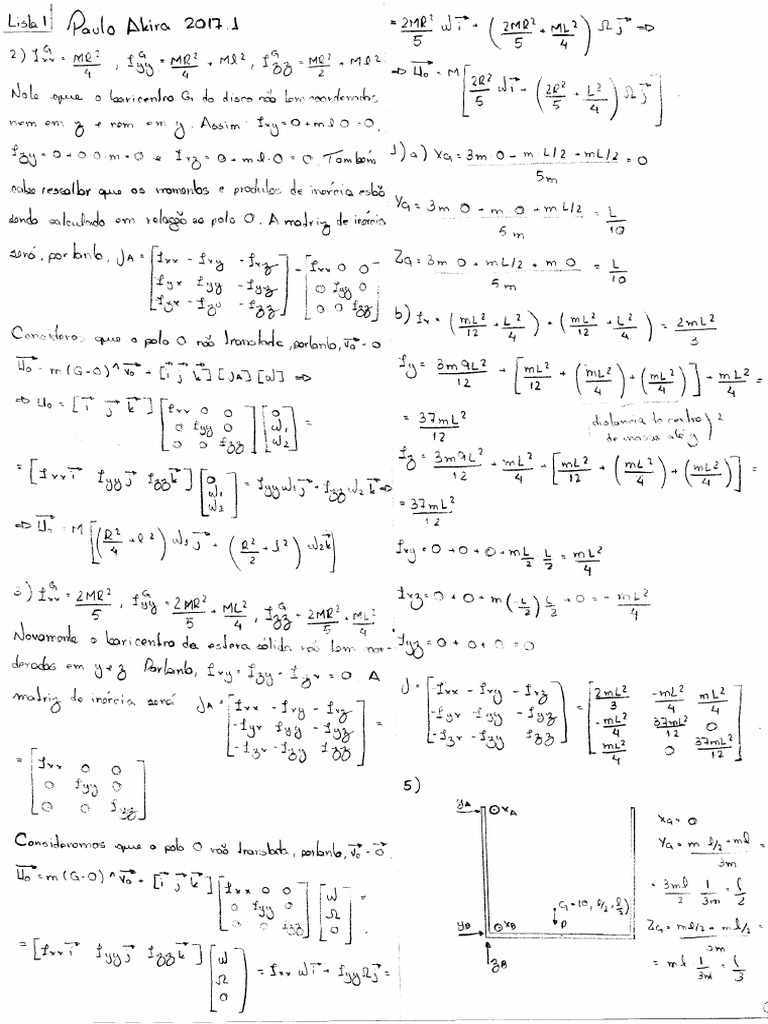 Lista 1 Paulo Akira 2017.1
2) I_xx^G = MR²/4 , I_yy^G = MR²/4 + Ml² , I_zz^G = MR²/2 + Ml²
Note que o baricentro G do disco não tem coordenadas
nem em z e nem em y. Assim I_xy = 0 + ml·0 = 0,
I_zy = 0 + 0·0·m = 0 e I_xz = 0 + ml·0 = 0. Também
cabe ressaltar que os momentos e produtos de inércia estão
sendo calculado em relação ao polo O. A matriz de inércia
será, portanto, J_A = [I_xx -I_xy -I_xz; I_yx I_yy -I_yz; -I_zx -I_zy -I_zz] = [I_xx 0 0; 0 I_yy 0; 0 0 I_zz]
Consideros que o polo O não translada, portanto, v_o = 0
H_o = m(G-O)^v_o + [i j k][J_A][ω] ⇒
⇒ H_o = [i j k] [I_xx 0 0; 0 I_yy 0; 0 0 I_zz] [0; ω₁; ω₂] =
= [I_xx i I_yy j I_zz k] [0; ω₁; ω₂] = I_yy ω₁ j + I_zz ω₂ k ⇒
⇒ H_o = M [(R²/4 + l²) ω₁ j + (R²/2 + l²) ω₂ k]
3) I_xx^G = 2MR²/5 , I_yy^G = 2MR²/5 + ML²/4 , I_zz^G = 2MR²/5 + ML²/4
Novamente o baricentro da esfera sólida não tem coor-
deradas em y e z Portanto, I_xy = I_zy = I_zx = 0 A
matriz de inércia será J_A = [I_xx -I_xy -I_xz; -I_yx I_yy -I_yz; -I_zx -I_zy I_zz] =
= [I_xx 0 0; 0 I_yy 0; 0 0 I_zz]
Consideromos que o polo O não translada, portanto, v_o = 0.
H_o = m(G-O)^v_o + [i j k] [I_xx 0 0; 0 I_yy 0; 0 0 I_zz] [ω; Ω; 0] =
= [I_xx i I_yy j I_zz k] [ω; Ω; 0] = I_xx ω i + I_yy Ω j =
= 2MR²/5 ω i + (2MR²/5 + ML²/4) Ω j ⇒
⇒ H_o = M [2R²/5 ω i + (2R²/5 + L²/4) Ω j].
1) a) X_G = (3m·0 - m·L/2 + mL/2)/5m = 0
Y_G = (3m·0 - m·0 + mL/2)/5m = L/10
Z_G = (3m·0 + mL/2 + m·0)/5m = L/10
b) I_x = (mL²/12 + L²/4) + (mL²/12 + L²/4) = 2mL²/3
I_y = 3m9L²/12 + [mL²/12 + (mL²/4) + (mL²/4)] + mL²/4 =
= 37mL²/12 (distancia do centro de massa até y)²
I_z = 3m9L²/12 + mL²/4 + [mL²/12 + (mL²/4) + (mL²/4)] =
= 37mL²/12
I_xy = 0 + 0 + 0 + m L/2 · L/2 = mL²/4
I_xz = 0 + 0 + m(-L/2) L/2 + 0 = -mL²/4
I_yz = 0 + 0 + 0 = 0
J = [-I_xx -I_xy -I_xz; -I_yx I_yy -I_yz; -I_zx -I_zy I_zz] = [2mL²/3 -mL²/4 mL²/4; -mL²/4 37mL²/12 0; mL²/4 0 37mL²/12].
5)
y_A x_A
G = (0, l/2, l/3)
y_B x_B P
z_B
X_G = 0
Y_G = (m l/2 + ml)/3m
= 3ml/2 · 1/3m = l/2
Z_G = (ml/2 + ml/2)/3m =
= ml · 1/3m = l/3